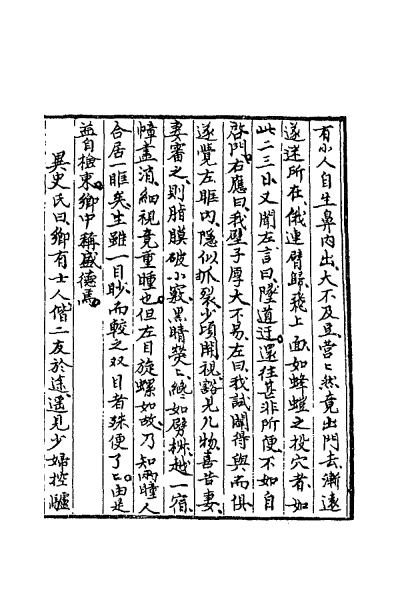 有小人自生鼻内出大不及豆營〻然竟出門去漸遠
遂迷所在俄連臂歸飛上面如蜂螘之投穴者如
此二三日又聞左言曰隧道迂還往甚非所便不如自
啓門右應曰我壁子厚大不易左曰我試闢得與而俱
遂覺左眶内隱似抓裂少頃開視豁見几物喜告妻
妻審之則脂膜破小竅黑睛熒〻纔如劈椒越一宿
幛盡消細視竟重瞳也但左目旋螺如故乃知兩瞳人
合居一眶矣生雖一目眇而較之双目者殊便了〻由是
益自檢束鄉中稱盛德焉
異史氏曰鄉有士人偕二友於途遥見少婦控驢